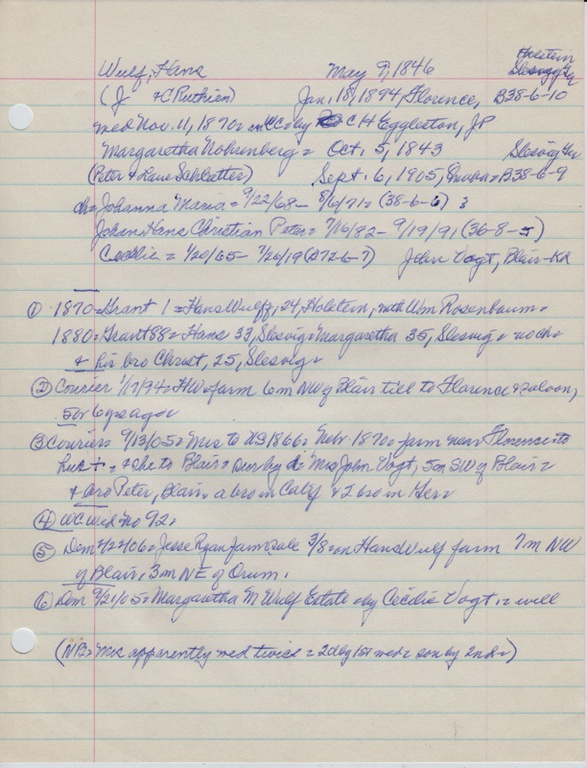 Holstein
Wulf, Hans May 9, 1846 Slesvig Ger
(J & C Ruthien) Jan. 18, 1894, Florence, B38-6-10
med Nov. 11, 1870 = on WC by C H Eggleston, JP
Margaretha Nohrenberg = Oct. 5, 1843 Slesvig Ger
(Peter & Lane Schlatter) Sept. 6, 1905, Omaha = B38-6-9
ch = Johanna Maria = 9/22/68 - 8/6/71 = (38-6-6)
Johan Hans Christian Peter = 7/16/82 - 9/19/91 (36-8-5)
Cecelia = 1/20/65 - 7/20/19 (A72-6-7) John Vogt, Blair-Rd
① 1870 = Grant 1 = Hans Wulf, 24, Holstein, with Wm Rosenbaum =
1880 = Grant 88 = Hans 33, Slesvig = Margaretha 35, Slesvig = no ch =
& his bro Christ, 25, Slesvig =
② Courier 1/17/94 = HW = farm 6 m NW of Blair till to Florence & saloon,
5 or 6 yrs ago =
③ Courier = 9/13/05 = Mrs to US 1866 = Nebr 1870 = farm near Florence to
hus + = & she to Blair = surv by Mrs John Vogt, 5 m SW of Blair =
& bro Peter, Blair = a bro in Calif & 2 bro in Ger =
④ WC Wed No 92 =
⑤ Dem 2/22/06 = Jesse Ryan farm sale 3/8 = on Hans Wulf farm 7 m NW
of Blair, 3 m NE of Orum.
⑥ Dem 9/21/05 = Margaretha M Wulf Estate = by Cecelia Vogt = will
(NB = Mrs apparently med twice = 2 d by 1st med = son by 2nd =)